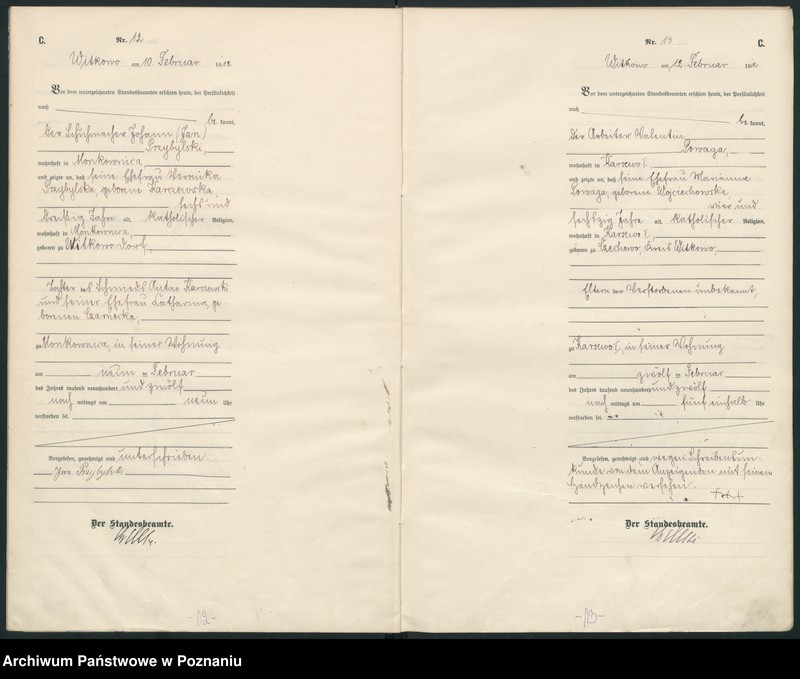 C.
Nr. 12
Witkowo am 10. Februar 1912
Vor dem unterzeichneten Standesbeamten erschien heute, der Persönlichkeit
nach
be kannt,
der Schuhmacher Johann (Jan)
Przybylski,
wohnhaft in Monkownica,
und zeigte an, daß seine Ehefrau Veronika
Przybylska, geborene Karczewska,
sechs und
dreißig Jahre alt, katholischer Religion,
wohnhaft in Monkownica,
geboren zu Witkowo Dorf,
Tochter des Schmieds Anton Karczewski
und seiner Ehefrau Katharina, ge-
borenen Czarnecka,
zu Monkownica, in seiner Wohnung
am neun ten Februar
des Jahres tausend neunhundert und zwölf
nach mittags um neun Uhr
verstorben sei.
Vorgelesen, genehmigt und unterschrieben
Jan Przybylski
Der Standesbeamte.
-12-
Nr. 13
C.
Witkowo am 12. Februar 1912
Vor dem unterzeichneten Standesbeamten erschien heute, der Persönlichkeit
nach
be kannt,
der Arbeiter Valentin
Powaga,
wohnhaft in Karzewo I,
und zeigte an, daß seine Ehefrau Marianna
Powaga, geborene Wojciechowska,
vier und
sechszig Jahre alt, katholischer Religion,
wohnhaft in Karzewo I,
geboren zu Czechowo, Kreis Witkowo,
Eltern der Verstorbenen unbekannt,
zu Karzewo I, in seiner Wohnung
am zwölf ten Februar
des Jahres tausend neunhundert und zwölf
nach mittags um fünf einhalb Uhr
verstorben sei.
Vorgelesen, genehmigt und wegen Schreibensun-
kunde von dem Anzeigenden mit seinem
Handzeichen versehen.
+++
Der Standesbeamte.
-13-
Archiwum Państwowe w Poznaniu